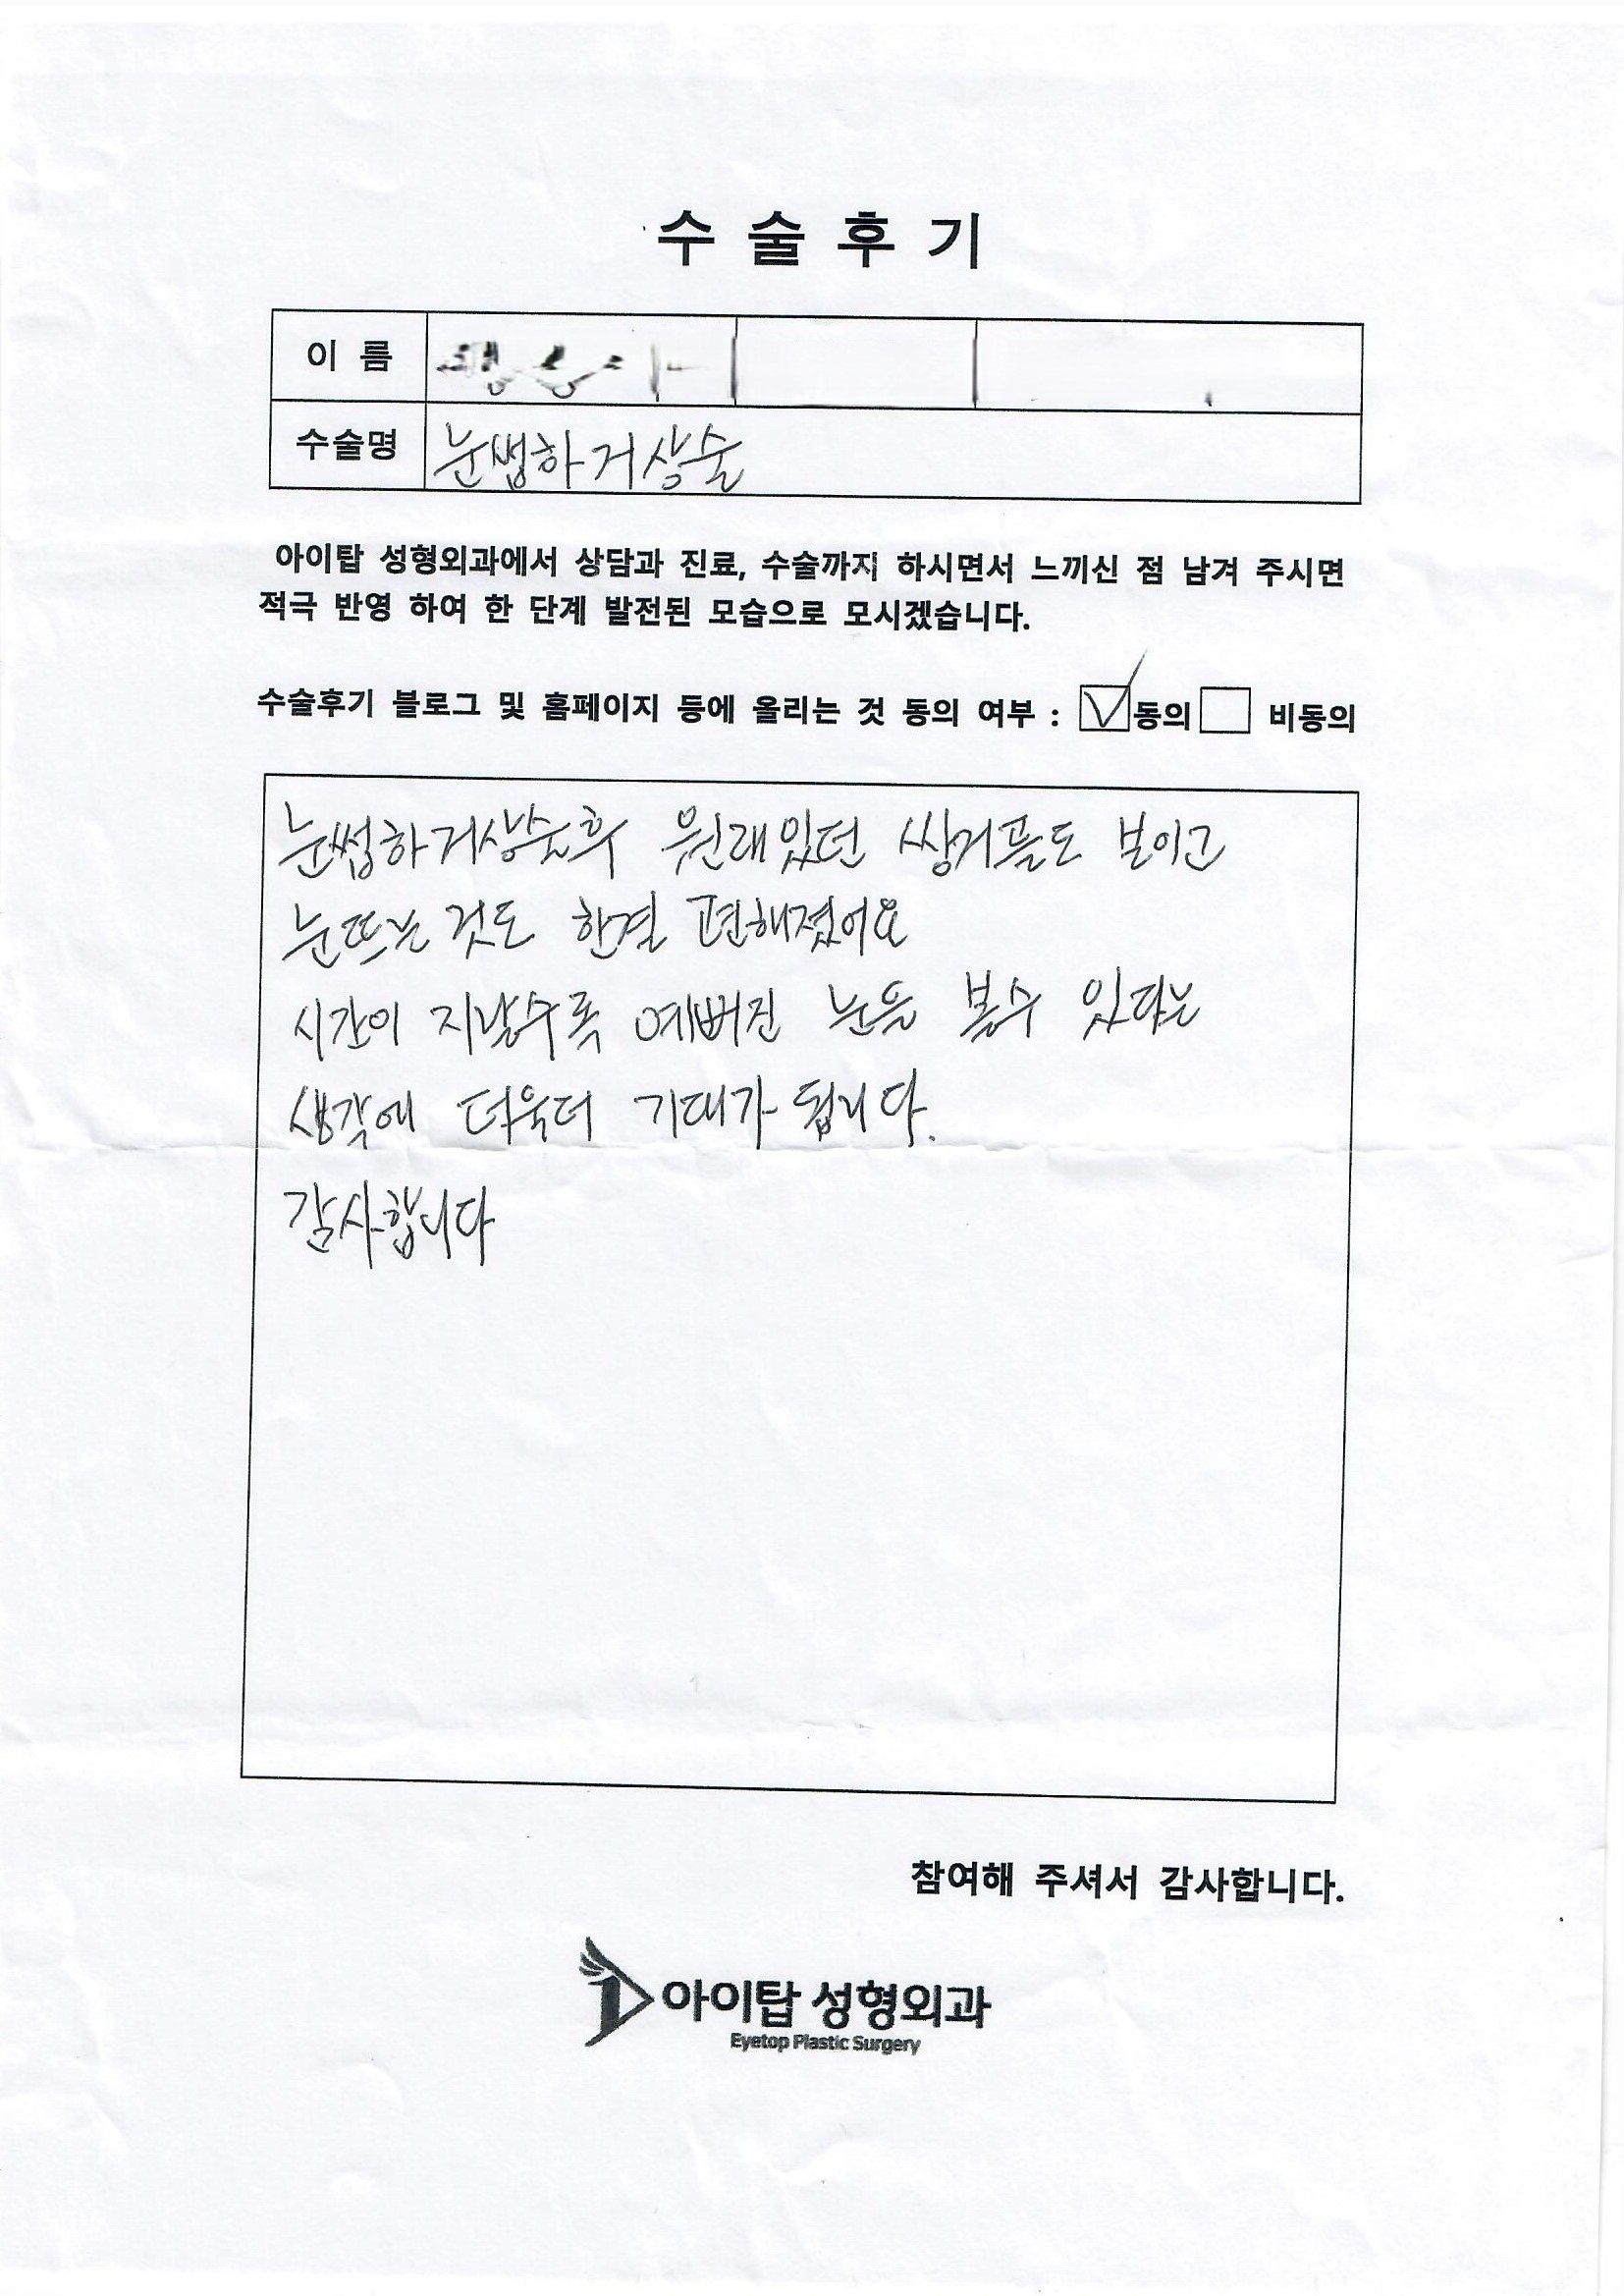 수술후기
이 름
수술명 눈썹하거상술
아이탑 성형외과에서 상담과 진료, 수술까지 하시면서 느끼신 점 남겨 주시면
적극 반영 하여 한 단계 발전된 모습으로 모시겠습니다.
수술후기 블로그 및 홈페이지 등에 올리는 것 동의 여부 : ☑동의 □ 비동의
눈썹하거상술후 원래있던 쌍거플도 보이고
눈뜨는 것도 한결 편해졌어요
시간이 지날수록 예뻐진 눈을 볼수 있다는
생각에 더욱더 기대가 됩니다.
감사합니다
참여해 주셔서 감사합니다.
아이탑 성형외과
Eyetop Plastic Surgery